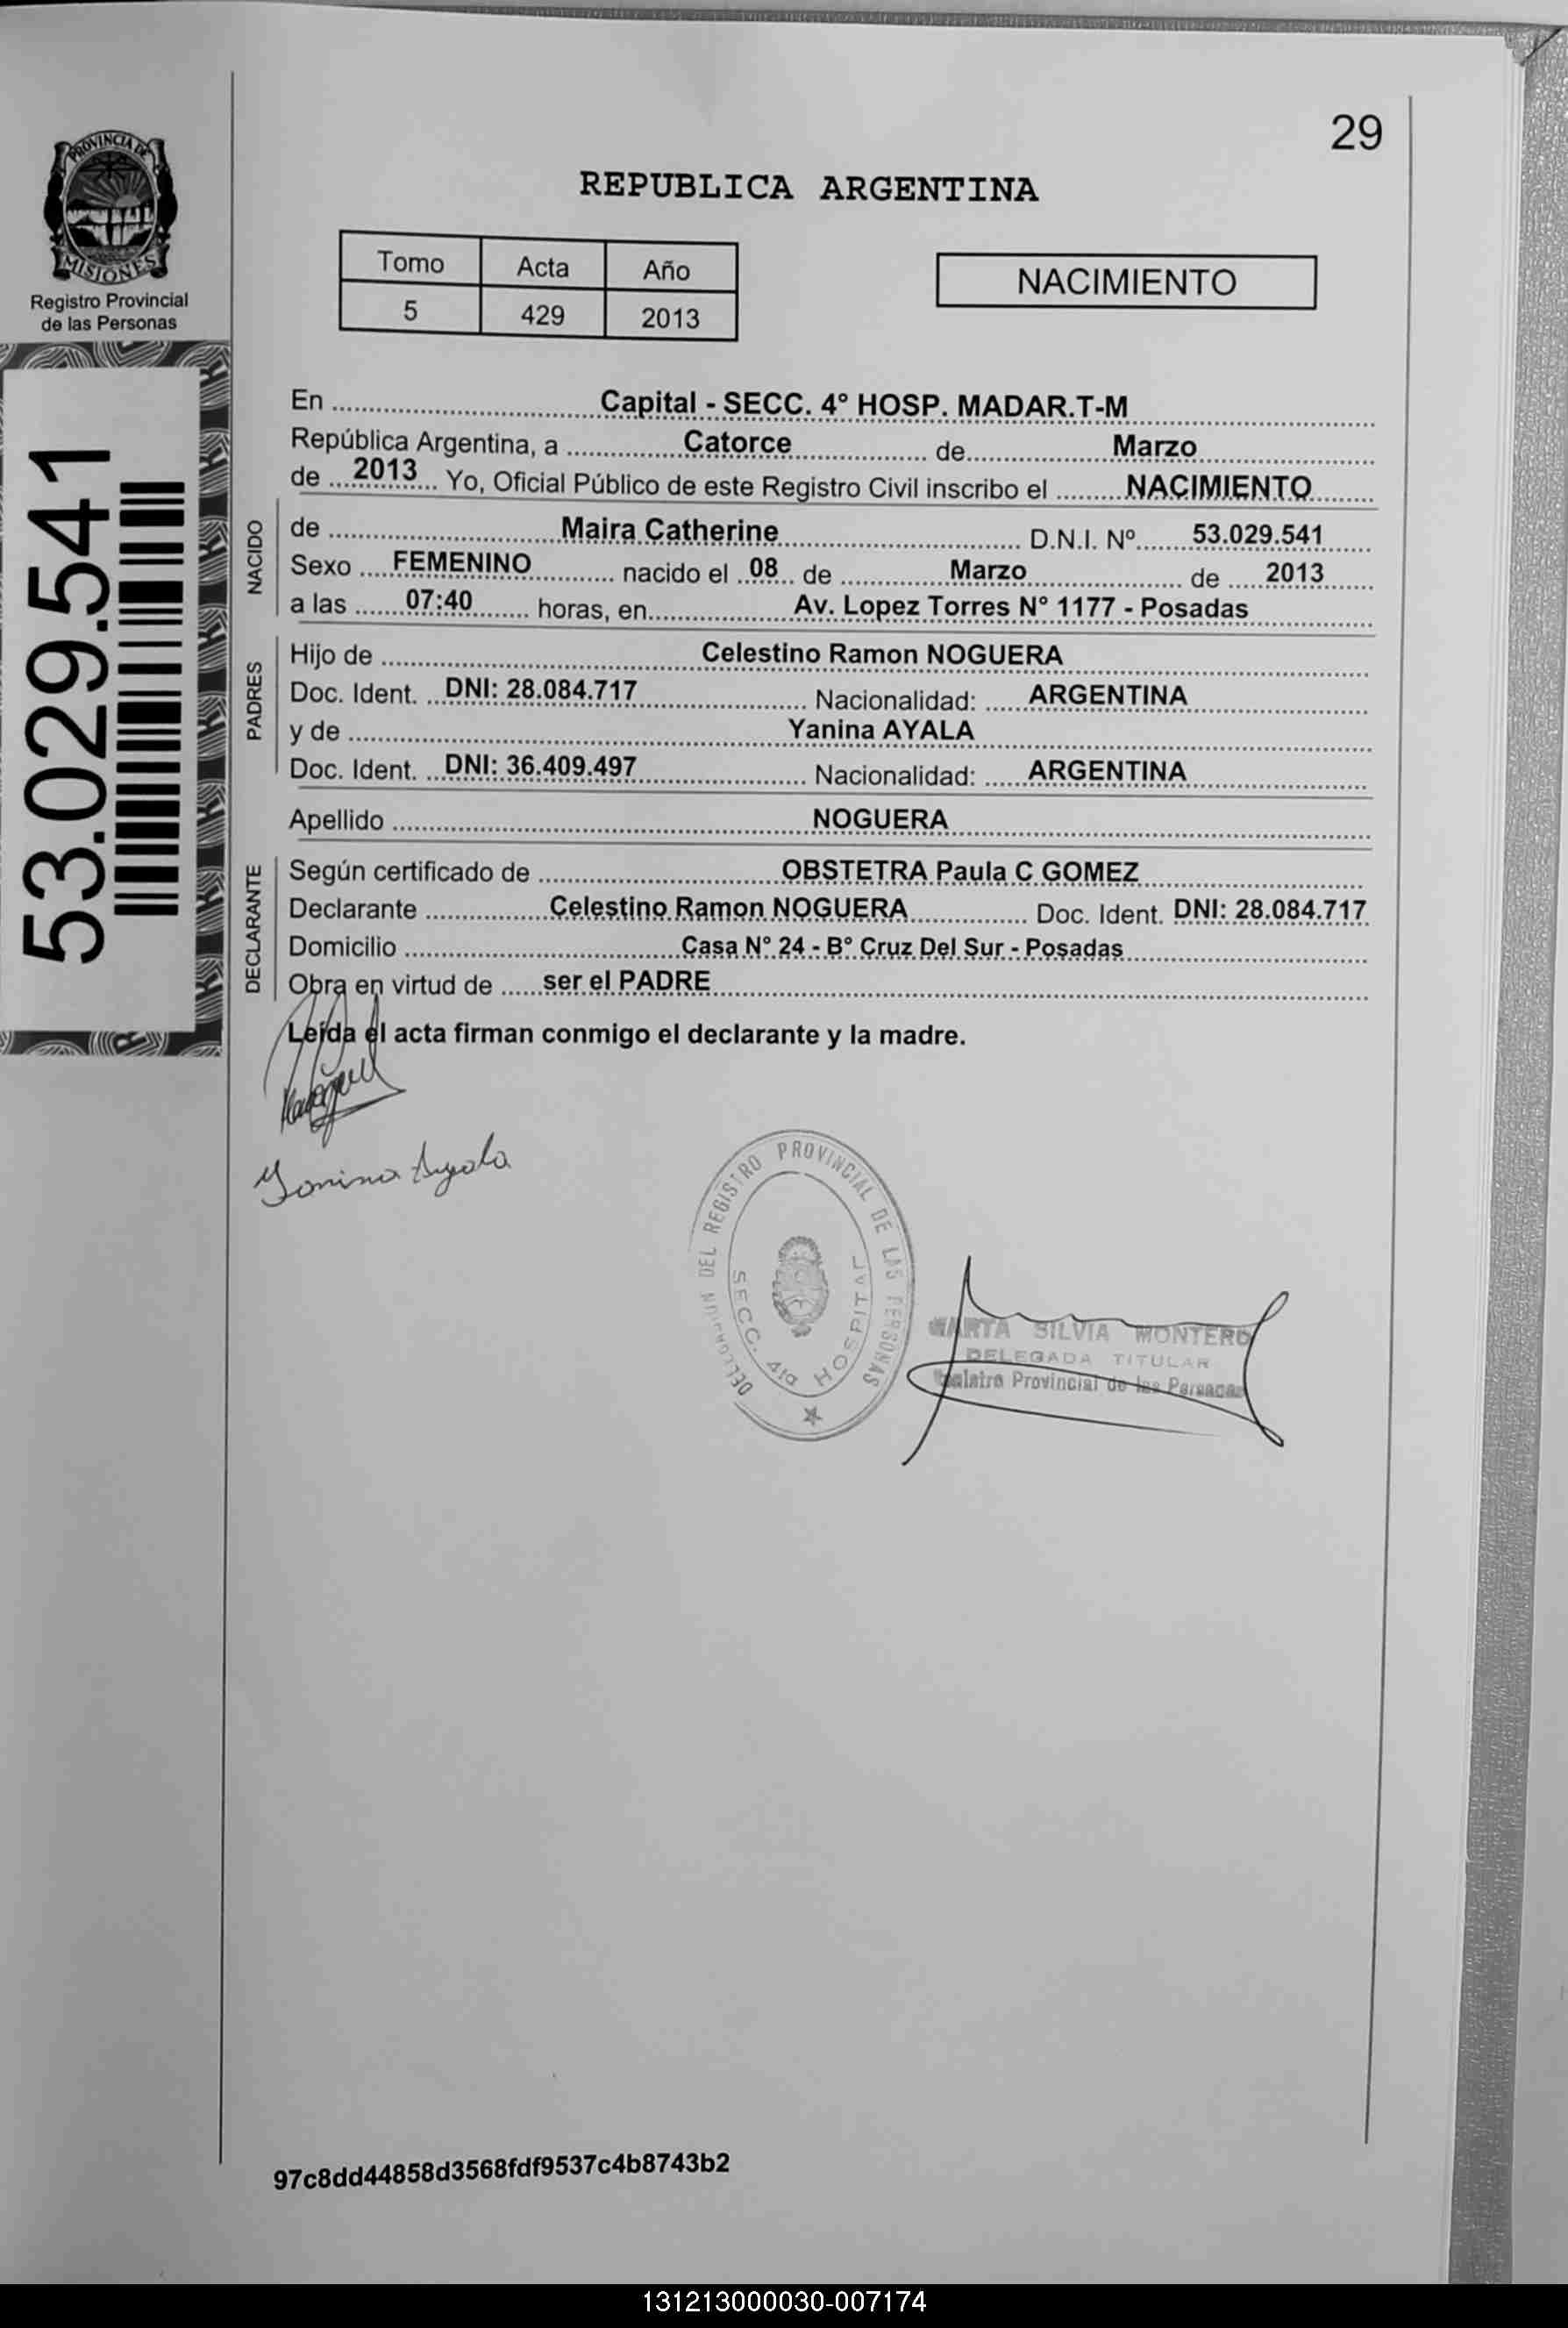 29
PROVINCIA DE
MISIONES
Registro Provincial
de las Personas
53.029.541
REPUBLICA ARGENTINA
Tomo Acta Año
5 429 2013
NACIMIENTO
En Capital - SECC. 4° HOSP. MADAR.T-M
República Argentina, a Catorce de Marzo
de 2013 Yo, Oficial Público de este Registro Civil inscribo el NACIMIENTO
NACIDO
de Maira Catherine D.N.I. Nº 53.029.541
Sexo FEMENINO nacido el 08 de Marzo de 2013
a las 07:40 horas, en Av. Lopez Torres N° 1177 - Posadas
PADRES
Hijo de Celestino Ramon NOGUERA
Doc. Ident. DNI: 28.084.717 Nacionalidad: ARGENTINA
y de Yanina AYALA
Doc. Ident. DNI: 36.409.497 Nacionalidad: ARGENTINA
Apellido NOGUERA
DECLARANTE
Según certificado de OBSTETRA Paula C GOMEZ
Declarante Celestino Ramon NOGUERA Doc. Ident. DNI: 28.084.717
Domicilio Casa N° 24 - B° Cruz Del Sur - Posadas
Obra en virtud de ser el PADRE
Leída el acta firman conmigo el declarante y la madre.
Yanina Ayala
DEL REGISTRO PROVINCIAL DE LAS PERSONAS
SECC. 4ta HOSPITAL
MARTA SILVIA MONTERO
DELEGADA TITULAR
Provincial de las Personas
97c8dd44858d3568fdf9537c4b8743b2
131213000030-007174